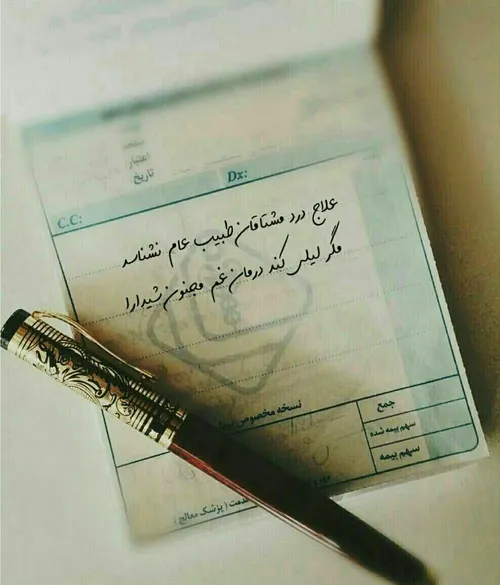 اعتبار
تاریخ
Dx:
C.C:
علاج درد مشتاقان طبیب عام نشناسد
مگر لیلی کند درمان غم مجنون شیدا را
نسخه مخصوص
جمع
سهم بیمه شده
سهم بیمه
(پزشک معالج)